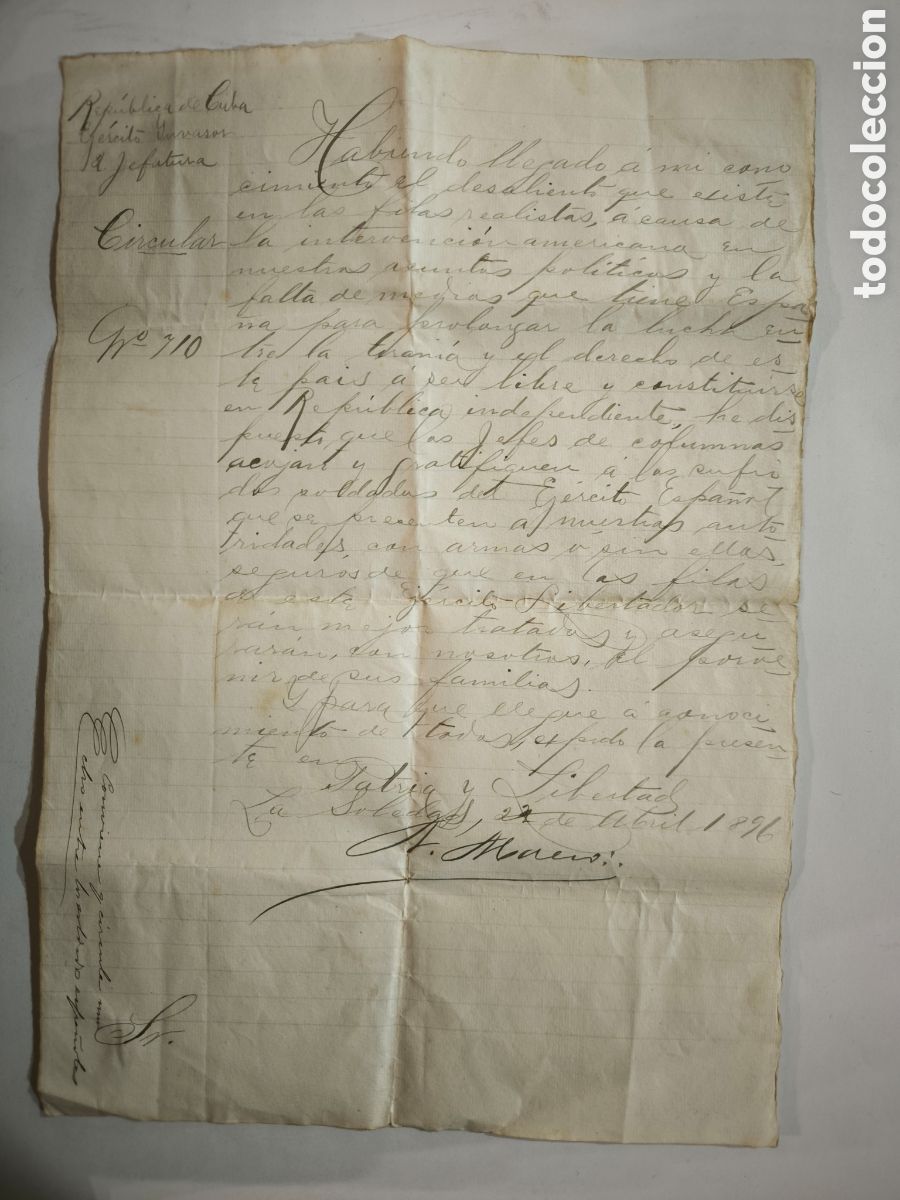 República de Cuba
Ejército Invasor
Jefatura
Circular
Nº 710
Habiendo llegado á mi cono
cimiento el desaliento que existe
en las filas realistas, á causa de
la intervención americana en
nuestros asuntos políticos y la
falta de medios que tiene Espa
ña para prolongar la lucha en
tre la tiranía y el derecho de es
te pais á ser libre y constituirse
en República independiente, he dis
puesto que los Jefes de columnas
acojan y gratifiquen á los sufri
dos soldados del Ejército Español
que se presenten a nuestras auto
ridades con armas o sin ellas,
seguros de que en las filas
de este Ejército Libertador se
rán mejor tratados y asegu
rarán, con nosotros, el porve
nir de sus familias.
Y para que llegue á conoci
miento de todos, expido la presen
te en
Patria y Libertad
La Soledad, 22 de Abril 1896
A. Maceo
Sr.
Conviene y circule
entre los soldados españoles
todocoleccion